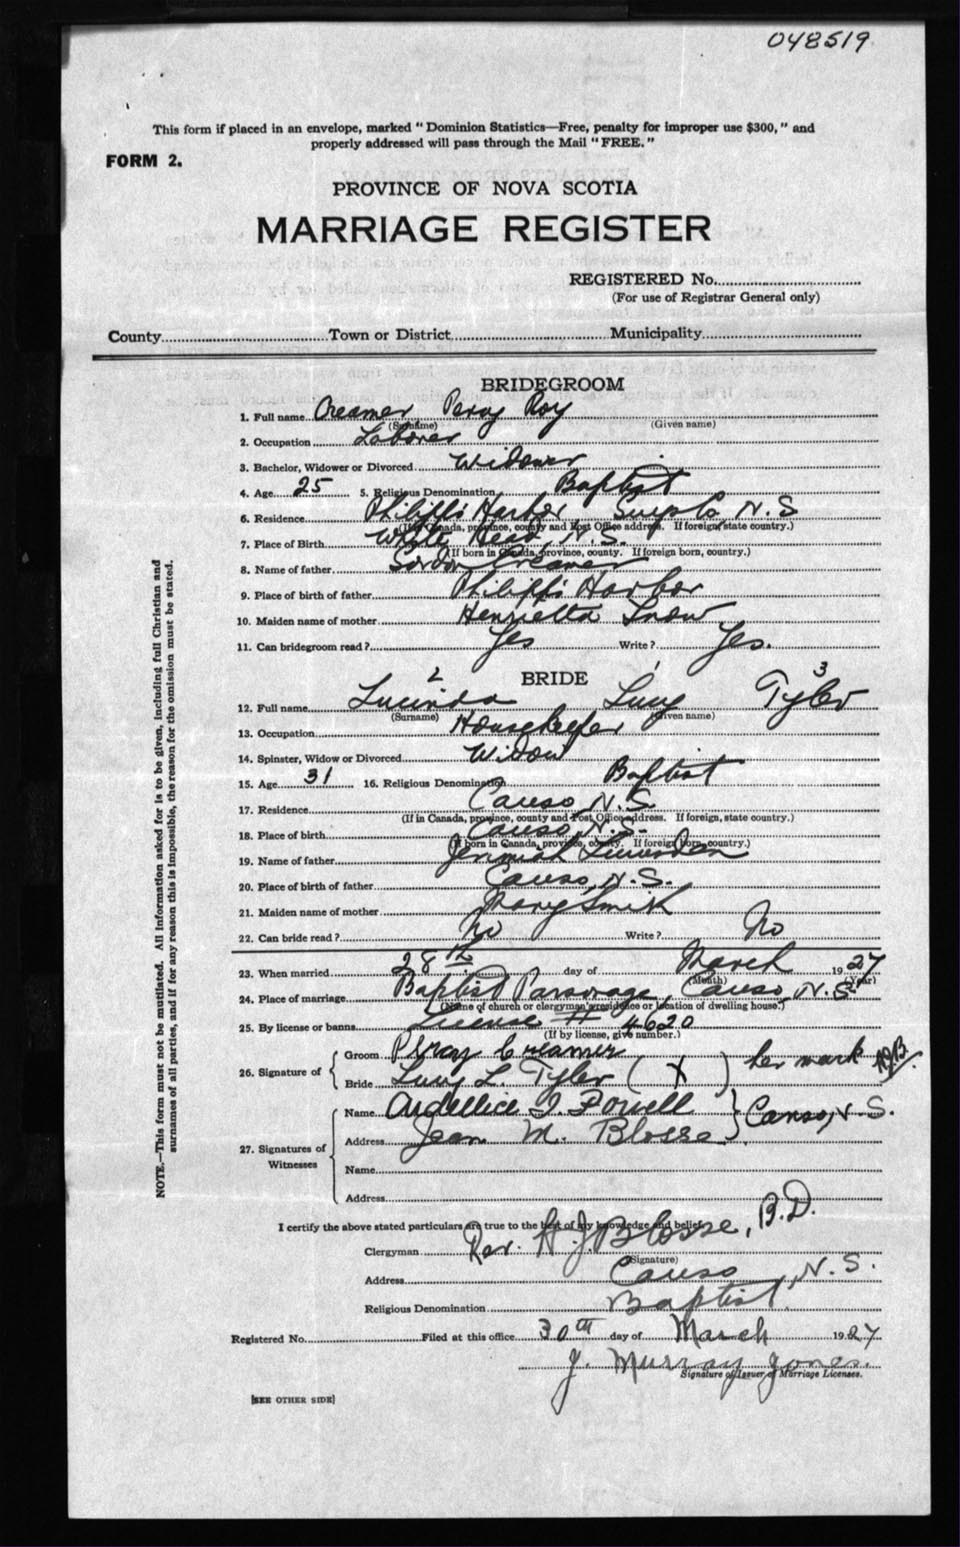 048519
This form if placed in an envelope, marked " Dominion Statistics—Free, penalty for improper use $300, " and
properly addressed will pass through the Mail " FREE. "
FORM 2.
PROVINCE OF NOVA SCOTIA
MARRIAGE REGISTER
REGISTERED No.
(For use of Registrar General only)
County Town or District Municipality
BRIDEGROOM
1. Full name Creamer Percy Roy
(Surname) (Given name)
2. Occupation Laborer
3. Bachelor, Widower or Divorced Widower
4. Age 25 5. Religious Denomination Baptist
6. Residence Philipp's Harbor Guys Co. N. S
(If in Canada, province, county and Post Office address. If foreign, state country.)
7. Place of Birth White Head, N. S.
(If born in Canada, province, county. If foreign born, country.)
8. Name of father Gordon Creamer
9. Place of birth of father Philipp's Harbor
10. Maiden name of mother Henrietta Snow
11. Can bridegroom read? Yes Write? Yes.
BRIDE
2 1 3
12. Full name Lucinda Lucy Tyler
(Surname) (Given name)
13. Occupation Housekeeper
14. Spinster, Widow or Divorced Widow
15. Age 31 16. Religious Denomination Baptist
17. Residence Canso, N. S.
(If in Canada, province, county and Post Office address. If foreign, state country.)
18. Place of birth Canso, N. S.
(If born in Canada, province, county. If foreign born, country.)
19. Name of father Jeremiah
20. Place of birth of father Canso, N. S.
21. Maiden name of mother Mary Smith
22. Can bride read? No Write? No
23. When married 28th day of March 1927
(Month) (Year)
24. Place of marriage Baptist Parsonage, Canso, N. S.
(Name of church or clergyman's residence or location of dwelling house.)
25. By license or banns License # 4620
(If by license, give number.)
26. Signature of { Groom Percy Creamer
Bride Lucy L. Tyler ( X ) her mark
27. Signatures of Witnesses { Name I. Powell } Canso, N. S.
Address Jean M. Blosse
Name
Address
I certify the above stated particulars are true to the best of my knowledge and belief.
Clergyman Rev. H. J. Blosse, B.D.
(Signature)
Address Canso, N. S.
Religious Denomination Baptist
Registered No. Filed at this office 30th day of March 1927
J. Murray Jones.
Signature of Issuer of Marriage Licenses.
[SEE OTHER SIDE]
NOTE.—This form must not be mutilated. All information asked for is to be given, including full Christian and
surnames of all parties, and if for any reason this is impossible, the reason for the omission must be stated.